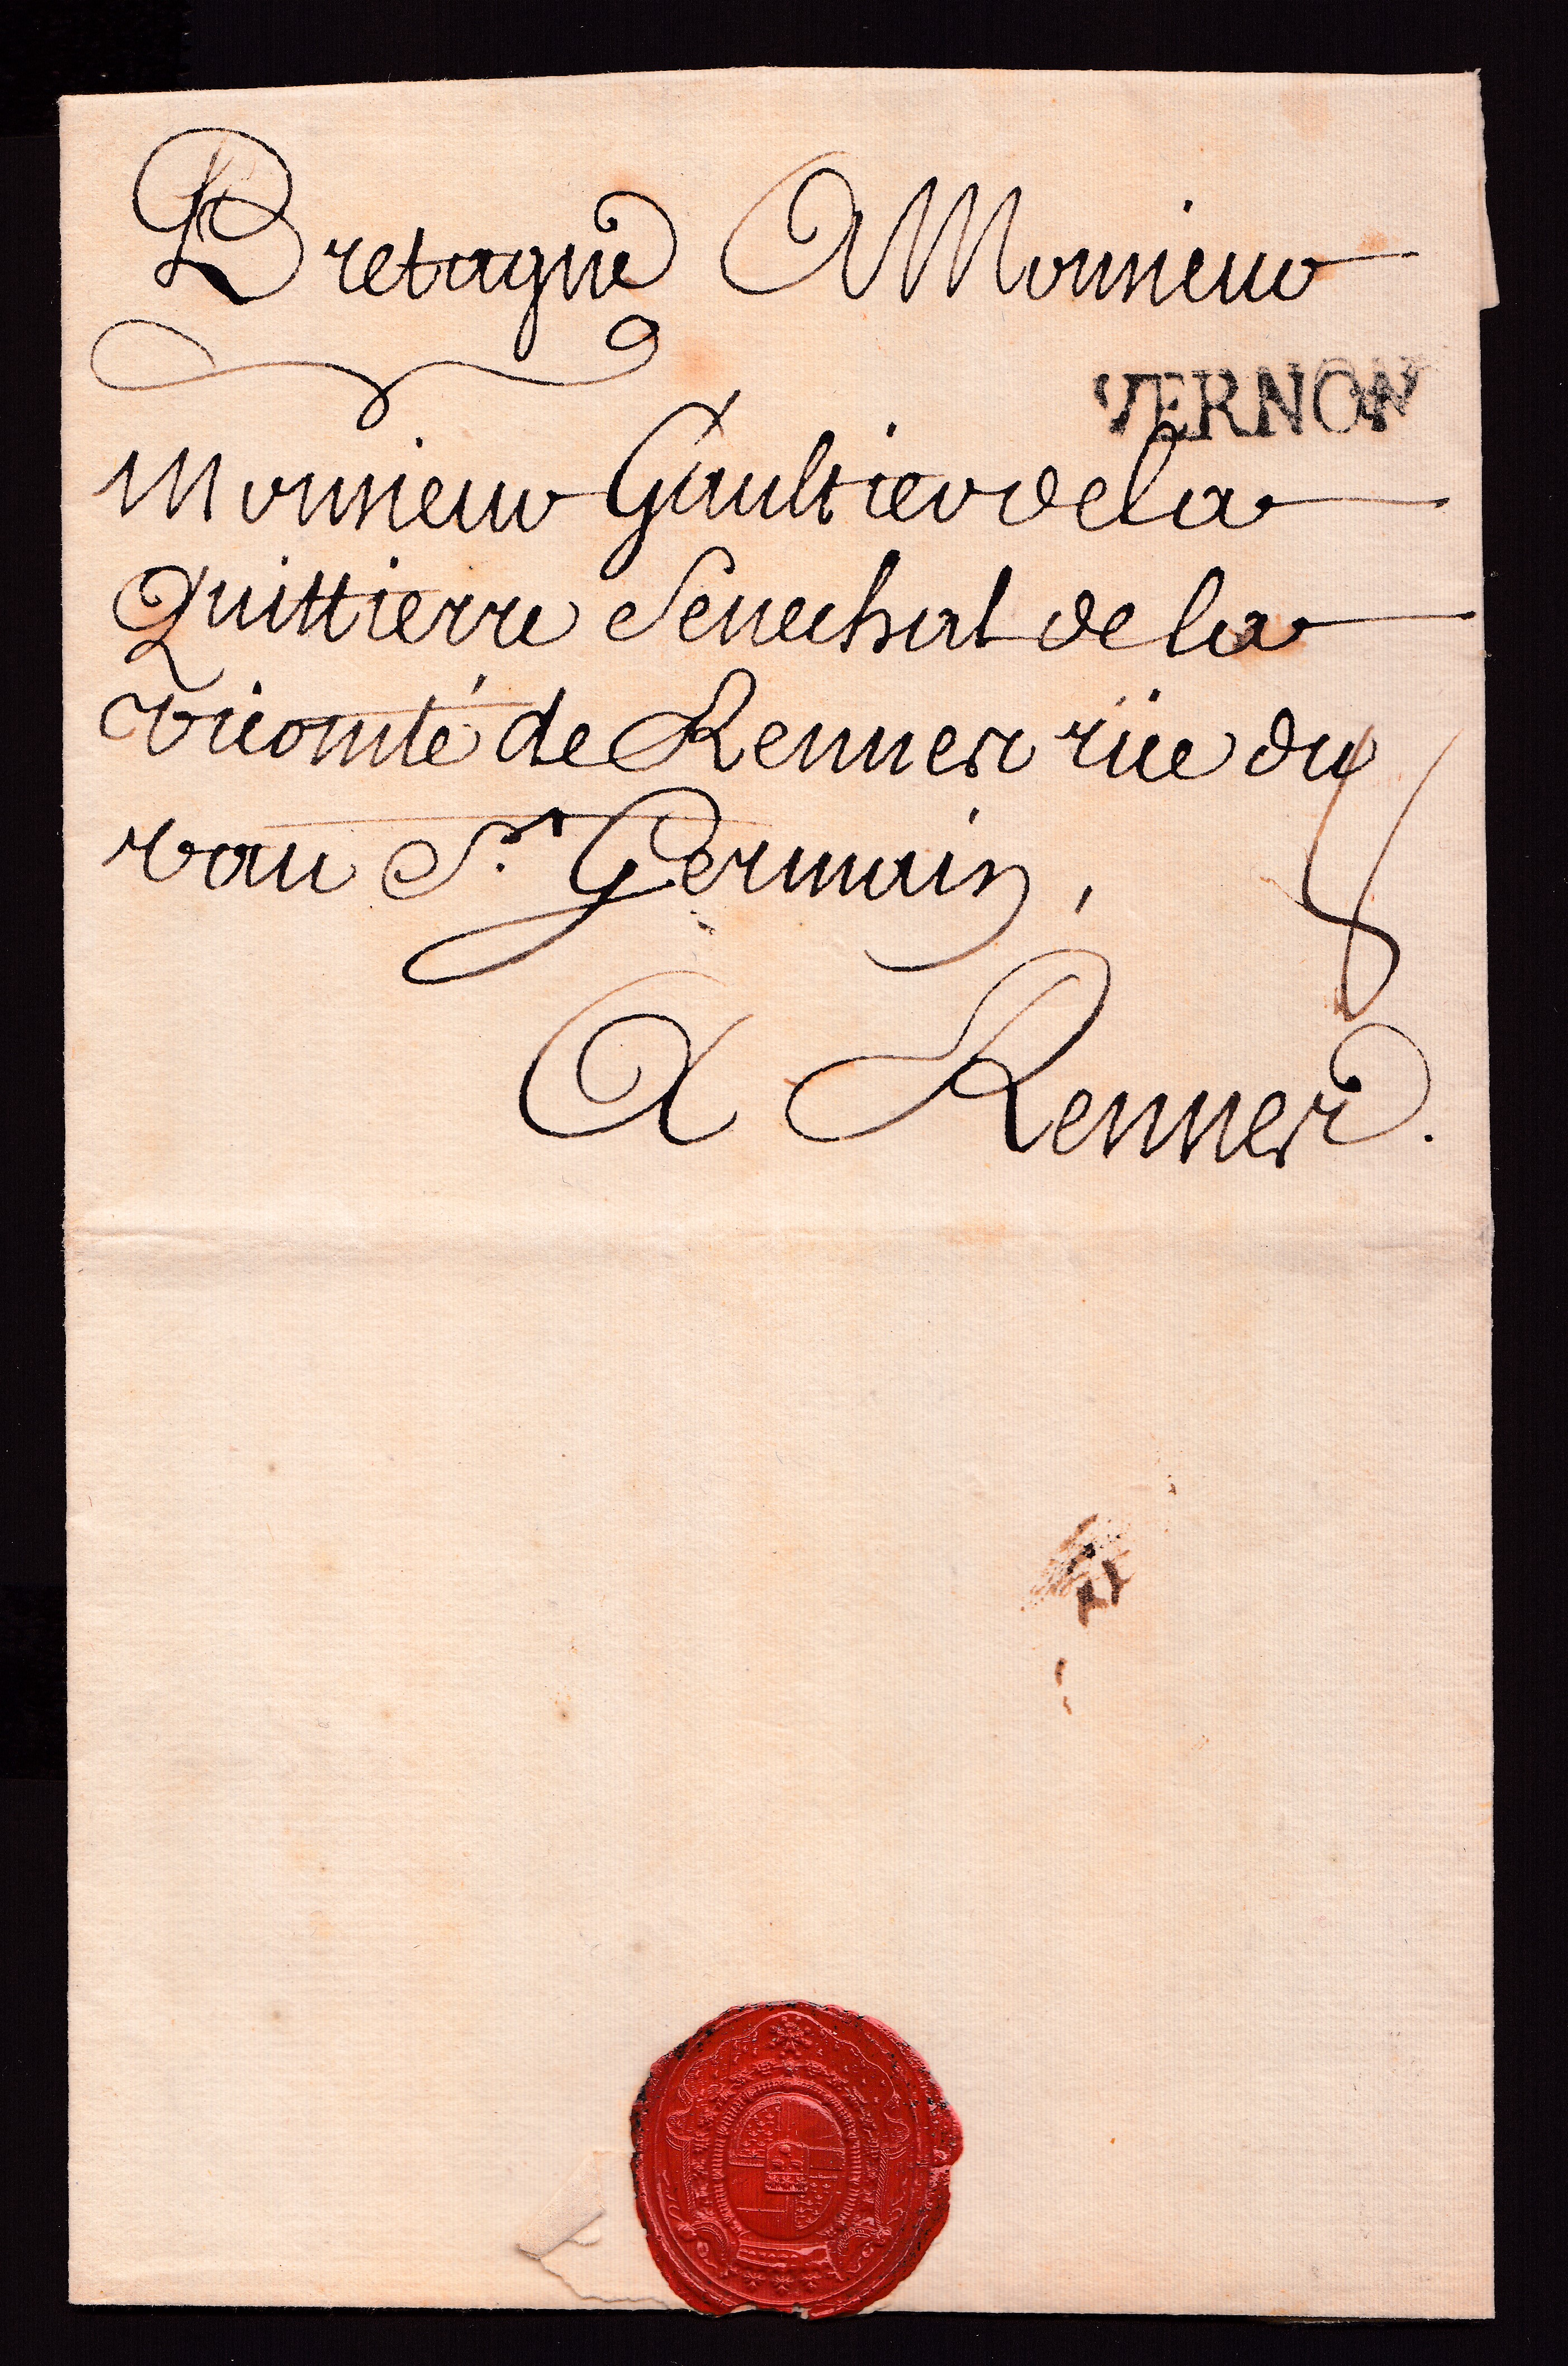 Bretagne A Monsieur
VERNON
Monsieur Gaultier de la
Quittierre Senechal de la
vicomté de Rennes rüe du
vau St. Germain,
A Rennes.